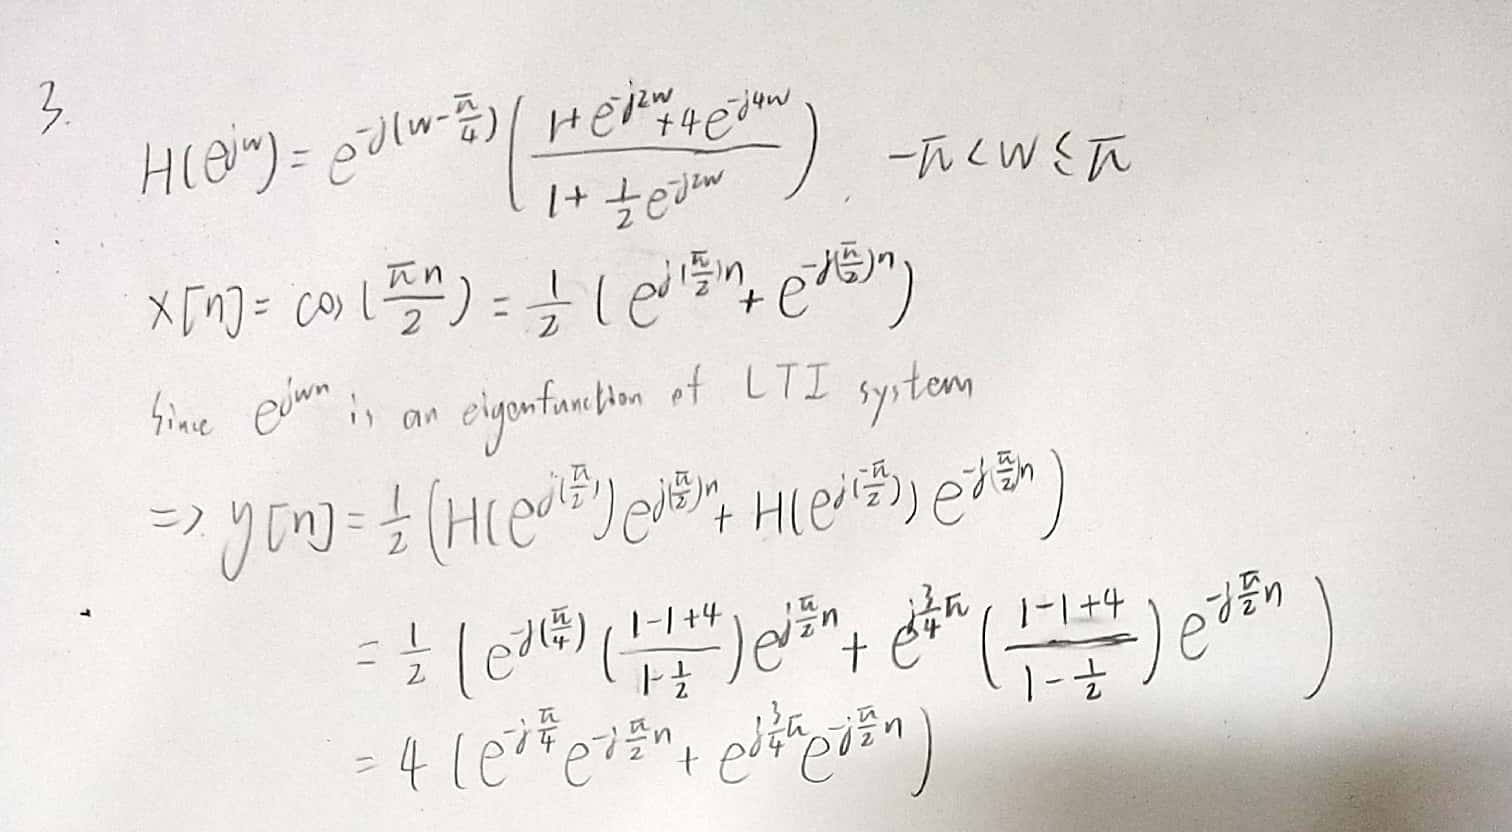 3.
H(e^{jw}) = e^{-j(w-π/4)} ( (1+e^{-j2w}+4e^{-j4w}) / (1+½e^{-j2w}) ), -π<w≤π
x[n] = cos(πn/2) = ½ (e^{j(π/2)n} + e^{-j(π/2)n})
Since e^{jwn} is an eigenfunction of LTI system
=> y[n] = ½ (H(e^{j(π/2)}) e^{j(π/2)n} + H(e^{j(-π/2)}) e^{-j(π/2)n})
= ½ (e^{-j(π/4)} ((1-1+4)/(1-½)) e^{jπ/2 n} + e^{j3/4π} ((1-1+4)/(1-½)) e^{-jπ/2 n})
= 4 (e^{-jπ/4} e^{-jπ/2 n} + e^{j3/4π} e^{-jπ/2 n})